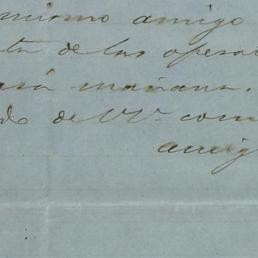 mismo amigo
ta de las opera
rá mañana.
do de VV. com
amig